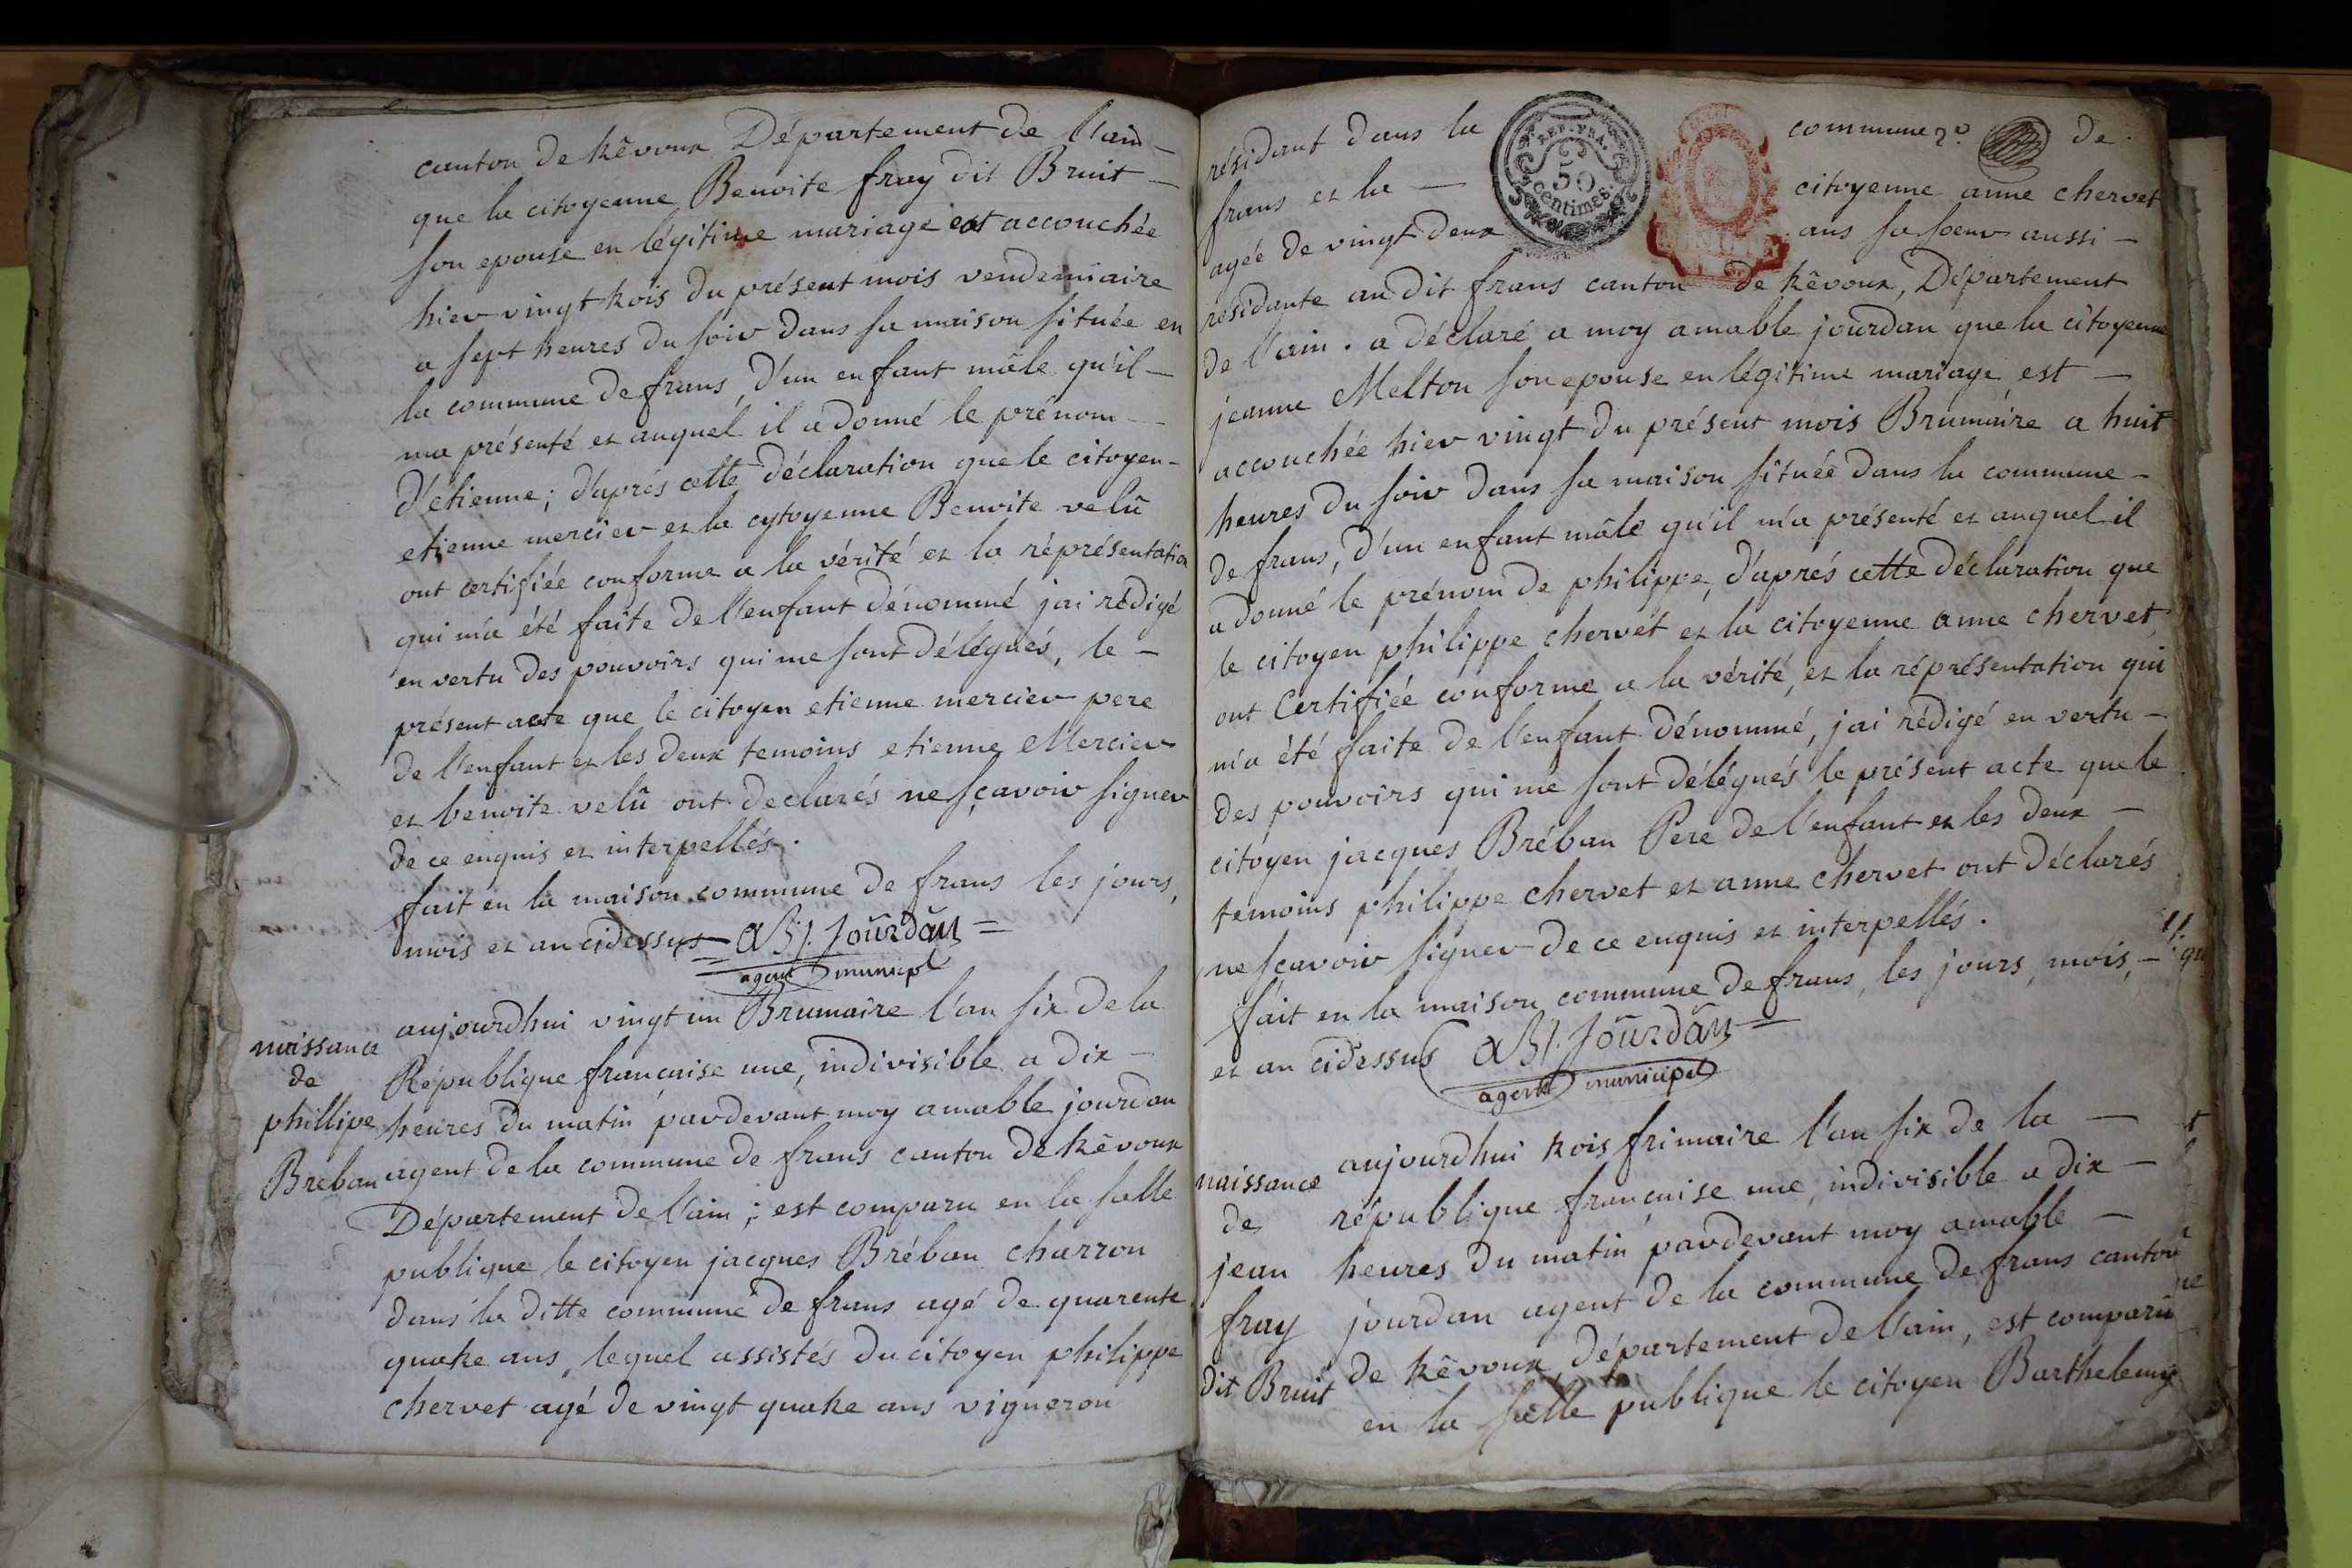 canton de trêvoux Département de l'ain -
que la citoyenne Benoite fray dit Bruit -
son epouse en légitime mariage est accouchée
hier vingt trois du présent mois vendemiaire
a sept heures du soir dans sa maison située en
la commune de frans, d'un enfant mâle qu'il -
ma présenté et auquel il a donné le prénom -
d'etienne; d'aprés cette déclaration que le citoyen -
etienne mercier et la cytoyenne Benoite velû
ont certifiée conforme a la vérité et la réprésentation
qui m'a été faite de l'enfant dénommé jai rédigé
en vertu des pouvoirs qui me sont délégués, le -
présent acte que le citoyen etienne mercier pere
de l'enfant et les deux temoins etienne Mercier
et benoite velû ont declarés ne sçavoir signer
de ce enquis et interpellés.
fait en la maison commune de frans les jours,
mois et an cidessus - Jourdan =
agent municipal
naissance
de
phillipe
Breban
aujourdhui vingt un Brumaire l'an six de la
République francaise une, indivisible a dix -
heures du matin pardevant moy amable jourdan
agent de la commune de frans canton de trêvoux
Département de l'ain; est comparu en la salle
publique le citoyen jacques Bréban charron
dans la ditte commune de frans agé de quarente
quatre ans, lequel assistés du citoyen philippe
chervet agé de vingt quatre ans vigneron
résidant dans la commune de
frans et la - citoyenne anne chervet
agée de vingt deux ans sa soeur aussi -
résidante audit frans canton de trêvoux, Département
de l'ain. a déclaré a moy amable jourdan que la citoyenne
jeanne Melton son epouse en légitime mariage est -
accouchée hier vingt du présent mois Brumaire a huit
heures du soir dans sa maison située dans la commune -
de frans, d'un enfant mâle qu'il m'a présenté et auquel il
a donné le prénom de philippe, d'aprés cette déclaration que
le citoyen philippe chervet et la citoyenne anne chervet,
ont Certifiée conforme a la vérité, et la réprésentation qui
m'a été faite de l'enfant dénommé, jai rédigé en vertu -
des pouvoirs qui me sont délégués le présent acte que le
citoyen jacques Bréban Pere de l'enfant et les deux -
temoins philippe chervet et anne chervet ont déclarés
ne sçavoir signer de ce enquis et interpellés.
fait en la maison commune de frans, les jours, mois, -
et an cidessus Jourdan =
agent municipal
REP. FRA.
50
centimes.
naissance
de
jean
fray
dit Bruit
aujourdhui trois frimaire l'an six de la -
république francaise une, indivisible a dix -
heures du matin pardevant moy amable -
jourdan agent de la commune de frans canton
de trêvoux, département de l'ain, est comparu
en la salle publique le citoyen Barthelemy